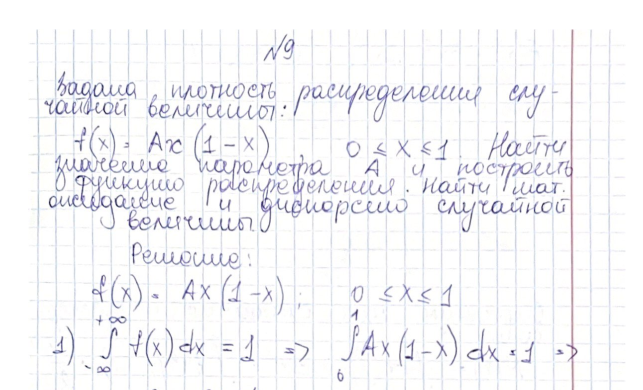 №9
Задана плотность распределения слу-
чайной величины:
f(x) = Ax (1-x), 0 ≤ x ≤ 1. Найти
значение параметра А и построить
функцию распределения. Найти мат.
ожидание и дисперсию случайной
величины
Решение:
f(x) = Ax (1-x); 0 ≤ x ≤ 1
1) ∫_{-∞}^{+∞} f(x) dx = 1 => ∫_0^1 Ax (1-x) dx = 1 =>